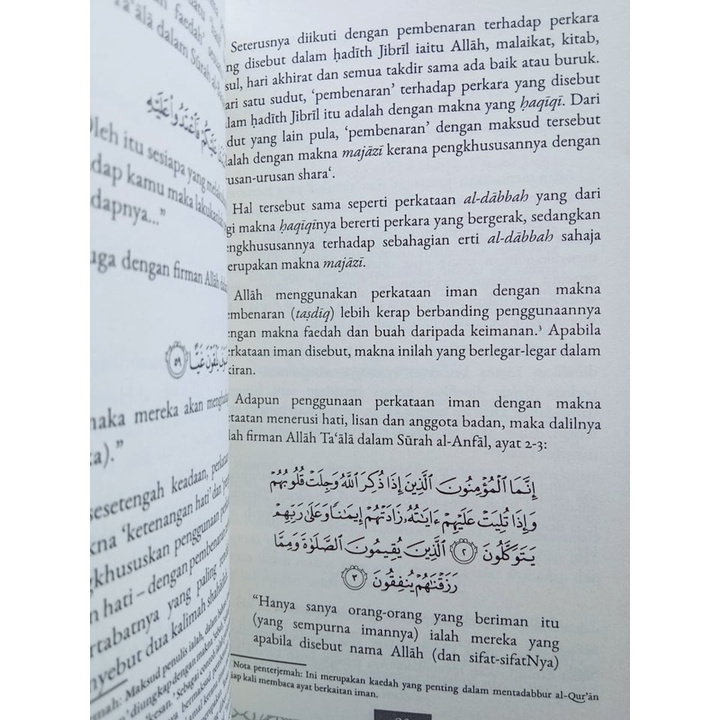 Ta'ālā dalam Sūrah al-
Oleh itu sesiapa yang
kamu maka
dapnya..."
uga dengan firman Allāh
maka mereka akan
ka)."
sesetengah keadaan,
makna 'ketenangan hati' dan
ngkhususkan penggunaan
n hati – dengan pembenaran
rtabatnya yang paling
nyebut dua kalimah
Seterusnya diikuti dengan pembenaran terhadap perkara
ng disebut dalam ḥadīth Jibrīl iaitu Allāh, malaikat, kitab,
sul, hari akhirat dan semua takdir sama ada baik atau buruk.
ari satu sudut, 'pembenaran' terhadap perkara yang disebut
alam ḥadīth Jibrīl itu adalah dengan makna yang ḥaqīqī. Dari
dut yang lain pula, 'pembenaran' dengan maksud tersebut
alah dengan makna majāzī kerana pengkhususannya dengan
rusan-urusan shara'.
Hal tersebut sama seperti perkataan al-dābbah yang dari
gi makna ḥaqīqīnya bererti perkara yang bergerak, sedangkan
engkhususannya terhadap sebahagian erti al-dābbah sahaja
erupakan makna majāzī.
Allāh menggunakan perkataan iman dengan makna
embenaran (taṣdīq) lebih kerap berbanding penggunaannya
engan makna faedah dan buah daripada keimanan.³ Apabila
erkataan iman disebut, makna inilah yang berlegar-legar dalam
kiran.
Adapun penggunaan perkataan iman dengan makna
etaatan menerusi hati, lisan dan anggota badan, maka dalilnya
lah firman Allāh Ta'ālā dalam Sūrah al-Anfāl, ayat 2-3:
إِنَّمَا ٱلْمُؤْمِنُونَ ٱلَّذِينَ إِذَا ذُكِرَ ٱللَّهُ وَجِلَتْ قُلُوبُهُمْ
وَإِذَا تُلِيَتْ عَلَيْهِمْ ءَايَٰتُهُۥ زَادَتْهُمْ إِيمَٰنًا وَعَلَىٰ رَبِّهِمْ
يَتَوَكَّلُونَ ٢ ٱلَّذِينَ يُقِيمُونَ ٱلصَّلَوٰةَ وَمِمَّا
رَزَقْنَٰهُمْ يُنفِقُونَ ٣
"Hanya sanya orang-orang yang beriman itu
(yang sempurna imannya) ialah mereka yang
apabila disebut nama Allāh (dan sifat-sifatNya)
Nota penterjemah: Ini merupakan kaedah yang penting dalam mentadabbur al-Qur'ān
iap kali membaca ayat berkaitan iman.